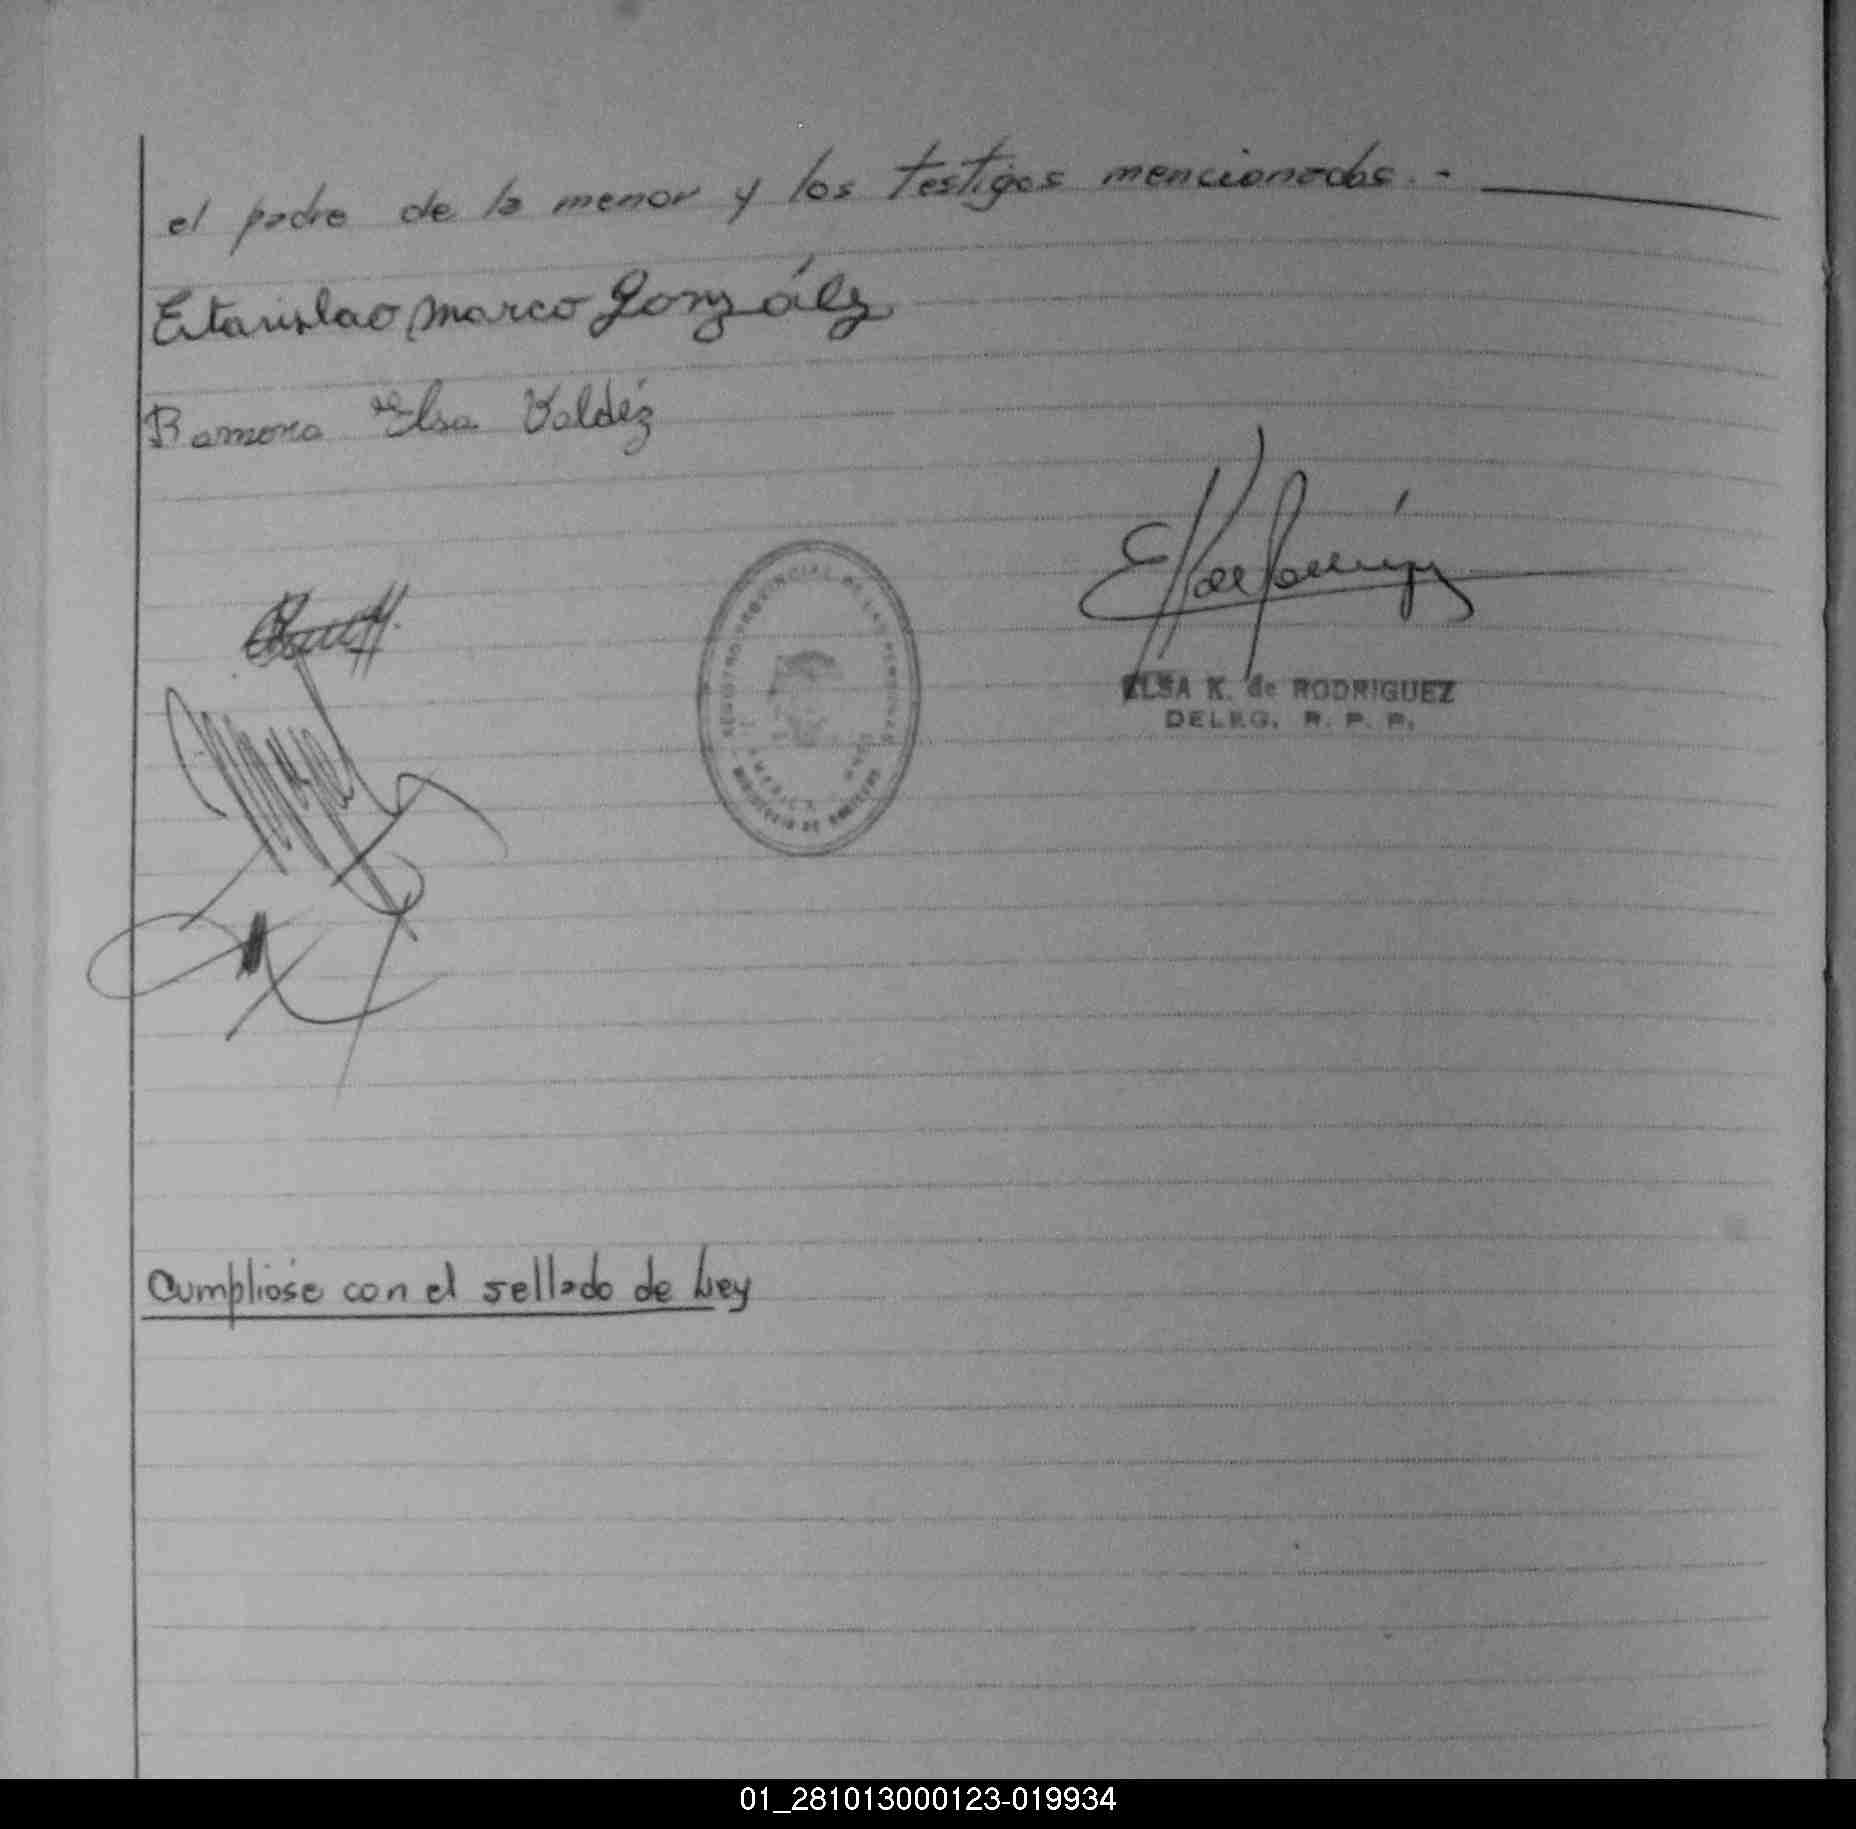 el padre de la menor y los testigos mencionados.-
Estanislao Marco González
Ramona Elsa Valdéz
REGISTRO PROVINCIAL DE LAS PERSONAS
ELSA K. de RODRIGUEZ
DELEG. R. P. P.
Cumplióse con el sellado de Ley
01_281013000123-019934